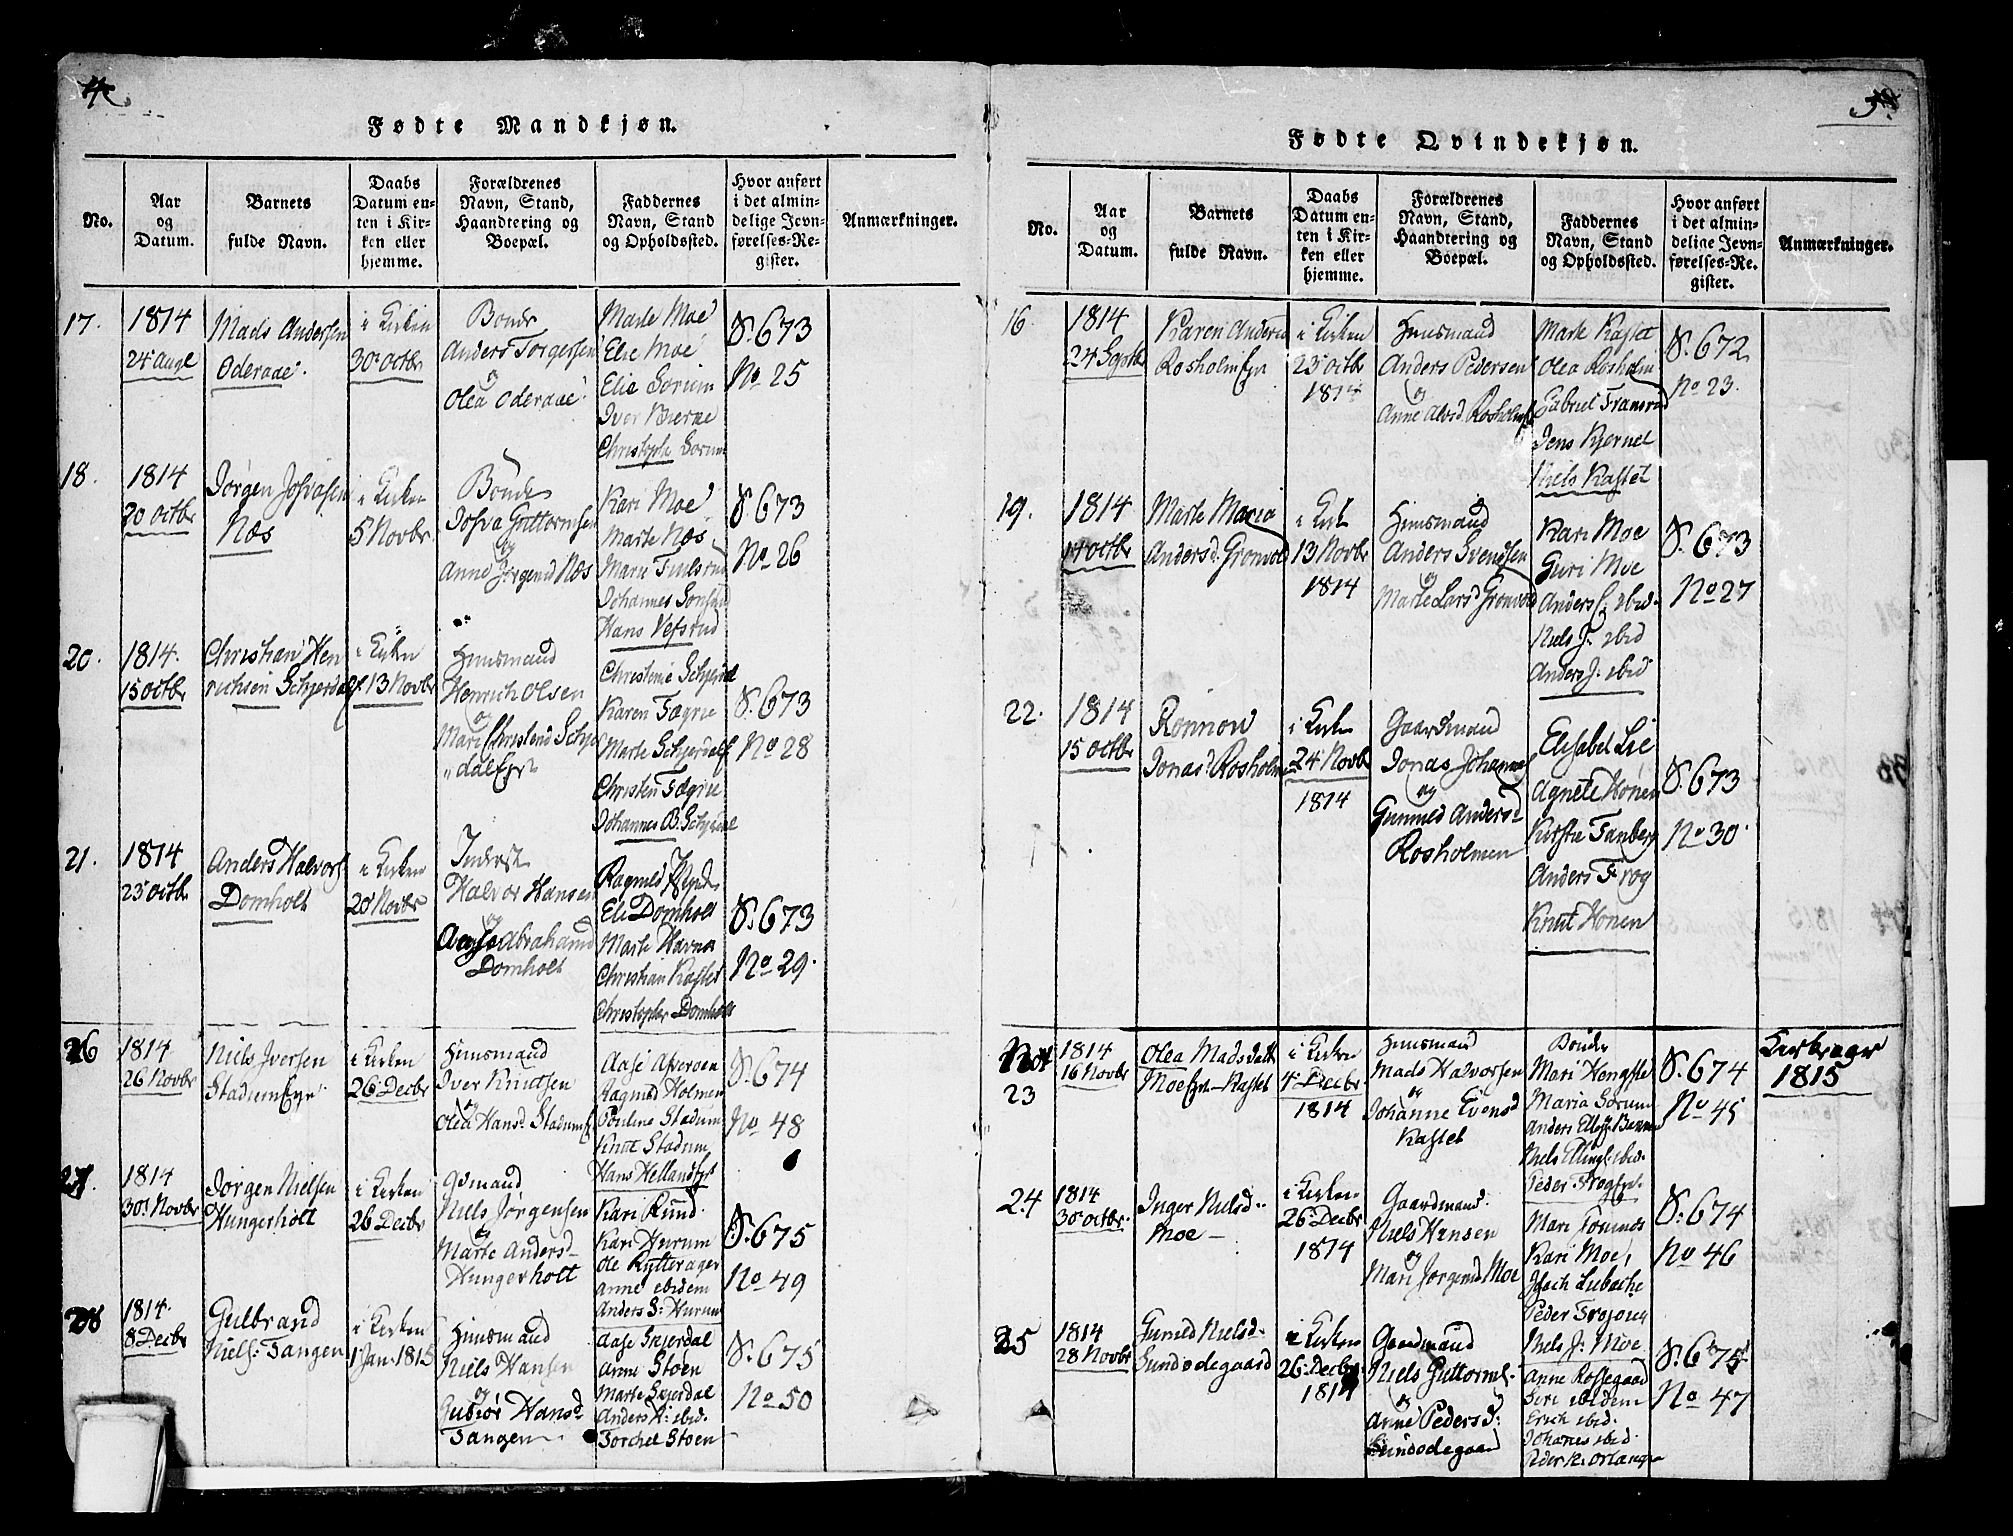 4
Fødte Mandkjøn.
No.
Aar
og
Datum.
Barnets
fulde Navn.
Daabs
Datum en-
ten i Kir-
ken eller
hjemme.
Forældrenes
Navn, Stand,
Haandtering og
Boepæl.
Faddernes
Navn, Stand
og Opholdssted.
Hvor anført
i det almin-
delige Jevn-
førelses-Re-
gister.
Anmærkninger.
17.
1814
24 Aug
Mads Andersen
Oderaae
i Kirken
30 octbr
Bonde
Anders Torgersen
og
Olea Oderaae
Marte Moe
Elie Moe
Elie Sorum
Iver Bierke
Christoph Sorum
S. 673
No 25
18.
1814
20 octbr
Jørgen Josvasen
Næs
i Kirken
5 Novbr
Bonde
Josva Guttormsen
og
Anne Jørgensd Næs
Kari Moe
Marte Næs
Johannes
Hans Vefsrud
S. 673
No 26
20.
1814.
15 octbr
Christian Hen
richsen Schjerdal
i Kirken
13 Novbr
Huusmand
Henrich Olsen
og
Mari Christensd Schjer
dal
Christine Schjerdal
Karen Fægrie
Marte Schjerdal
Christen Fægrie
Johannes B. Schjerdal
S. 673
No 28
21.
1814
23 octbr
Anders Halvors
Domholt
i Kirken
20 Novbr
Inderst
Halvor Hansen
og
Aase Abrahamsd
Domholt
Ragnild
Eli Domholt
Marte Havnes
Christian Kastet
Christopher Domholt
S. 673
No 29.
26
1814
26 Novbr
Niels Iversen
Stadum
i Kirken
26 Decbr
Huusmand
Iver Knutsen
og
Olea Hansd Stadum
Aase
Ragnild Holmen
Pouline Stadum
Knut Stadum
Hans Helland
S. 674
No 48
27.
1814
30 Novbr
Jørgen Nielsen
Hungerholt
i Kirken
26 Decbr
Gdmand
Niels Jørgensen
og
Marte Andersd
Hungerholt
Kari Rund
Kari Hurum
Ole Rytterager
Anne ibidem
Anders S: Hurum
S. 675
No 49
28
1814.
8 Decbr
Gulbrand
Niels: Tangen
i Kirken
1 Jan. 1815
Huusmand
Niels Hansen
og
Gubiør Hansd
Tangen
Aase Skjerdal
Anne Stoen
Marte Skjerdal
Anders H: ibid.
Torchel Stoen
S. 675
No 50
5
Fødte Qvindekjøn.
No.
Aar
og
Datum.
Barnets
fulde Navn.
Daabs
Datum en-
ten i Kir-
ken eller
hjemme.
Forældrenes
Navn, Stand,
Haandtering og
Boepæl.
Faddernes
Navn, Stand
og Opholdssted.
Hvor anført
i det almin-
delige Jevn-
førelses-Re-
gister.
Anmærkninger.
16.
1814
24 Septbr
Karen Andersd
Rosholm
i Kirken
23 octbr
1814
Huusmand
Anders Pedersen
og
Anne Alvsd Rosholm
Marte Kastet
Olea Rosholm
Gabriel Framrud
Jens Kjernet
Niels Kastet
S. 672
No 23.
19.
1814
14 octbr
Marte Maria
Andersd: Gronvold
i Kirk
13 Novbr
1814
Huusmand
Anders Svendsen
og
Marte Larsd Gronvold
Kari Moe
Guri Moe
Anders C: ibid.
Niels J: ibid
Anders J. ibid
S. 673
No 27
22.
1814
15 octbr
Ronnow
Jonasd. Rosholmen
i Kirken
24 Novbr
1814
Gaardmand
Jonas Johannes
og
Gunnild Andersd
Rosholmen
Elisabet Lie
Agnete Honen
Kirstie Fanberg
Anders Frog
Knut Honen
S. 673
No 30.
23
1814
16 Novbr
Olea Madsdatt
Moe Kastet
i Kirken
4 Decbr
1814
Huusmand
Mads Halvorsen
og
Johanne Evensd
Kastet
Bønder
Mari Hengsle
Maria Sorum
Niels Ellings: ibid.
Peder Frog
S. 674
No 45
Kirkeager
1815
24
1814
30 octbr.
Inger Nielsd.
Moe
i Kirken
26 Decbr
1814
Gaardmand.
Niels Hansen
og
Mari Jørgensd Moe
Mari
Kari Moe
Isach Lubeche
Peder
Niels J: Moe
S: 674
No 46
25
1814
28 Novbr
Gunild Nielsd.
Sundodegaard
i Kirken
26 Decbr
1814
Gaardmand
Niels Guttorms.
og
Anne Pedersd:
Sundodegaard
Anne Rossegaard
Siri ibidem
Erich ibid.
Johanes ibid.
Peder
S. 675
No 47